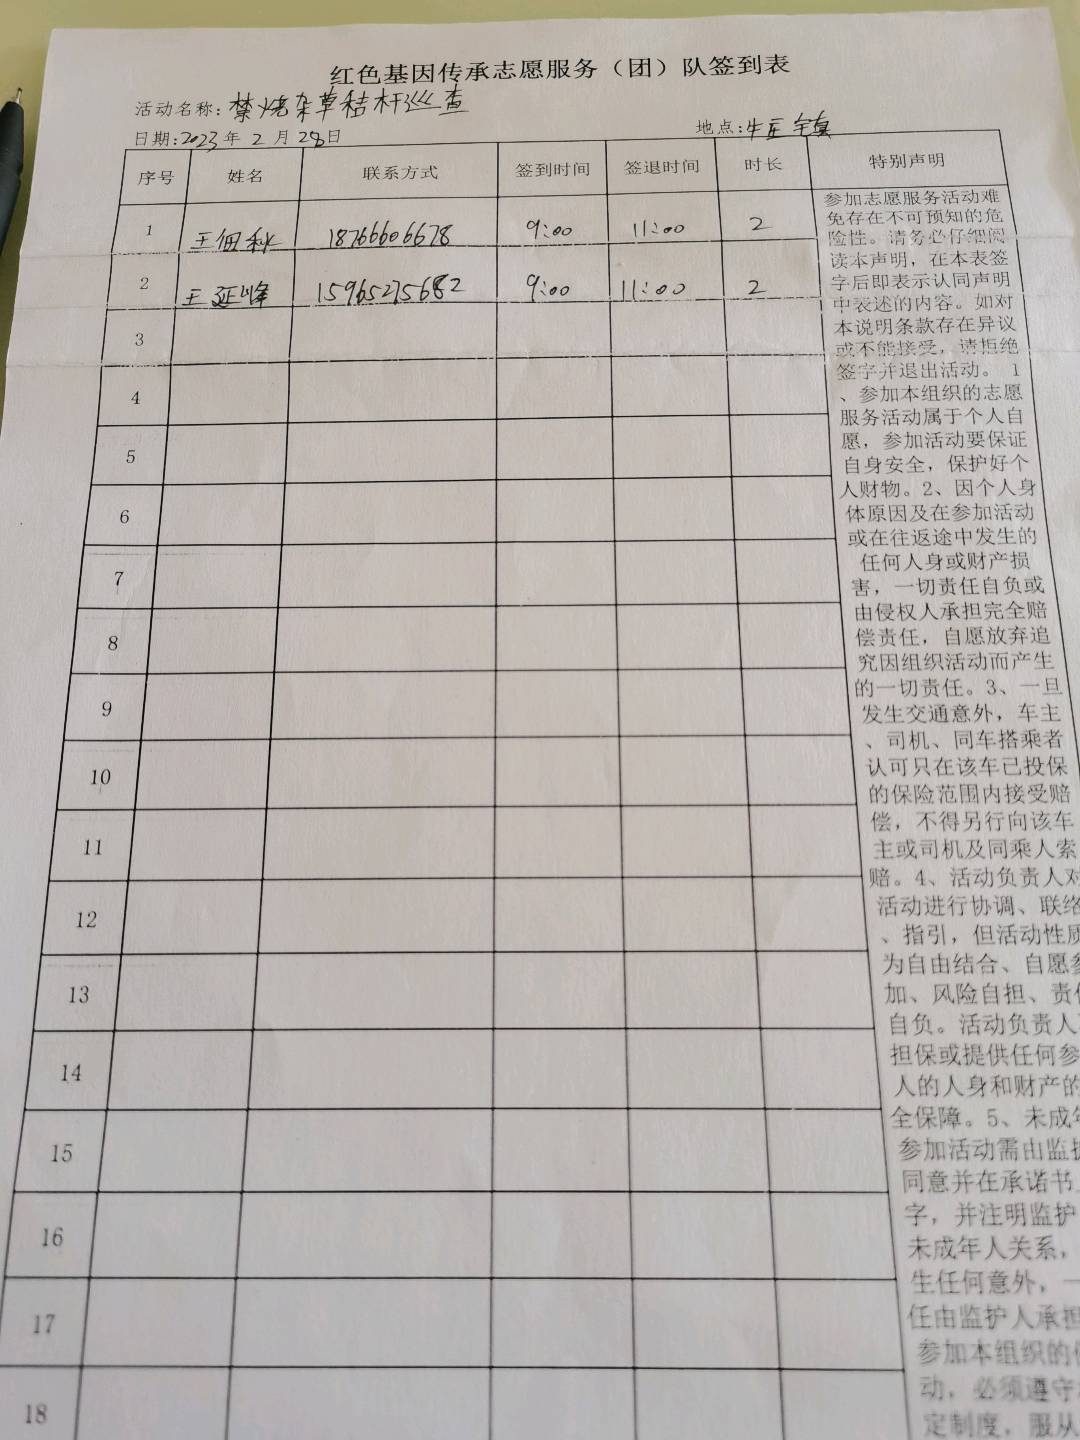 红色基因传承志愿服务（团）队签到表
活动名称：禁烧杂草秸杆巡查
日期：2023年 2 月 28日 地点：牛庄镇
序号 姓名 联系方式 签到时间 签退时间 时长 特别声明
1 王佃秋 18766606678 9:00 11:00 2
2 王延峰 15965275682 9:00 11:00 2
3
4
5
6
7
8
9
10
11
12
13
14
15
16
17
18
参加志愿服务活动难
免存在不可预知的危
险性。请务必仔细阅
读本声明，在本表签
字后即表示认同声明
中表述的内容。如对
本说明条款存在异议
或不能接受，请拒绝
签字并退出活动。 1
、参加本组织的志愿
服务活动属于个人自
愿，参加活动要保证
自身安全，保护好个
人财物。2、因个人身
体原因及在参加活动
或在往返途中发生的
任何人身或财产损
害，一切责任自负或
由侵权人承担完全赔
偿责任，自愿放弃追
究因组织活动而产生
的一切责任。3、一旦
发生交通意外，车主
、司机、同车搭乘者
认可只在该车已投保
的保险范围内接受赔
偿，不得另行向该车
主或司机及同乘人索
赔。4、活动负责人对
活动进行协调、联络
、指引，但活动性质
为自由结合、自愿参
加、风险自担、责任
自负。活动负责人
担保或提供任何参
人的人身和财产的
全保障。5、未成年
参加活动需由监护
同意并在承诺书
字，并注明监护
未成年人关系，
生任何意外，一
任由监护人承担
参加本组织的
动，必须遵守
定制度，服从